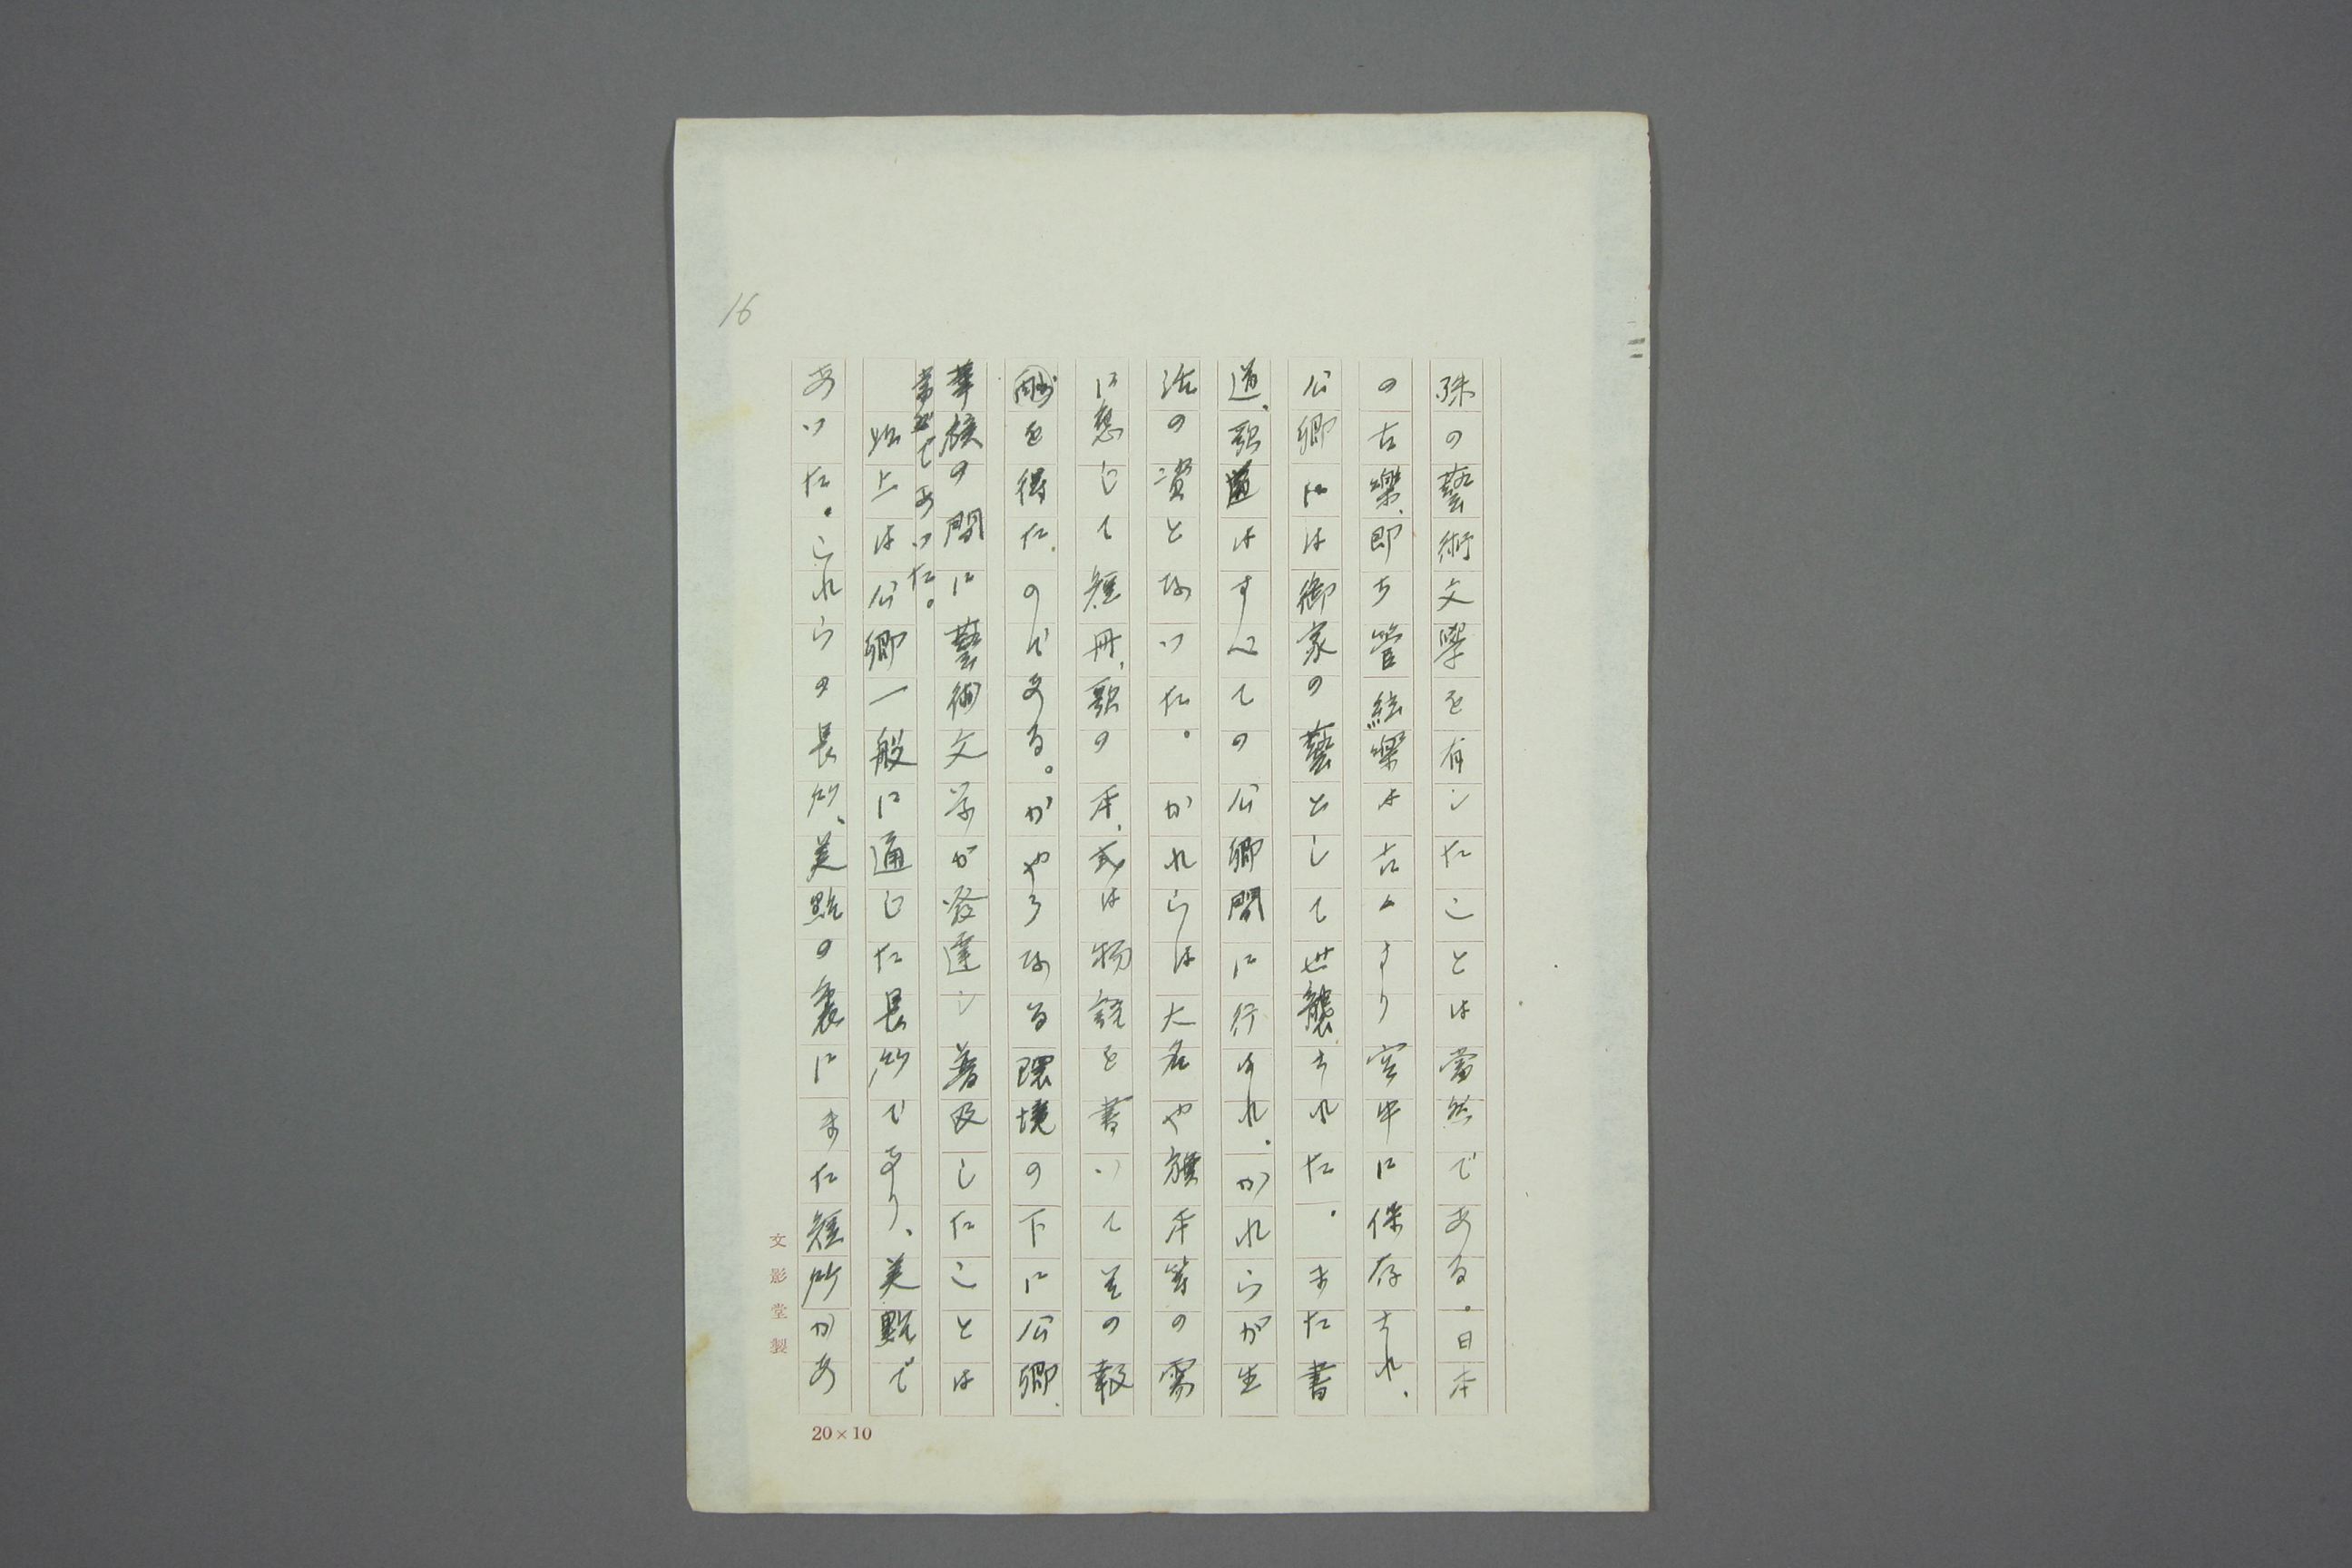 殊の藝術文學を有したことは當然である。日本
の古樂、即ち管絃樂は古くより宮中に保存され、
公卿には御家の藝として世襲された。また書
道、歌道はすべての公卿間に行はれ、かれらが生
活の資となつた。かれらは大名や旗本等の需
に應じて短冊、歌の本、或は物語を書いて其の報
酬を得たのである。かやうなる環境の下に公卿、
華族の間に藝術文学が發達し普及したことは
当然であつた。
始上は公卿一般に通じた長所であり、美點で
あつた。これらの長所、美點の裏にまた短所があ
16
文影堂製
20×10